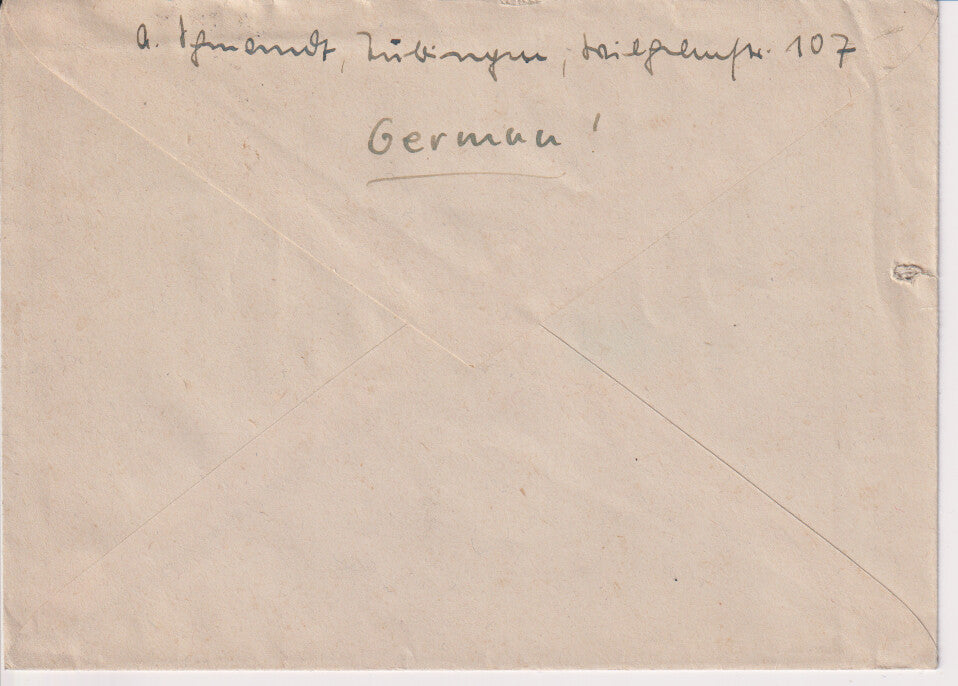 A. Schmandt, Tübingen, Wilhelmstr. 107
German!